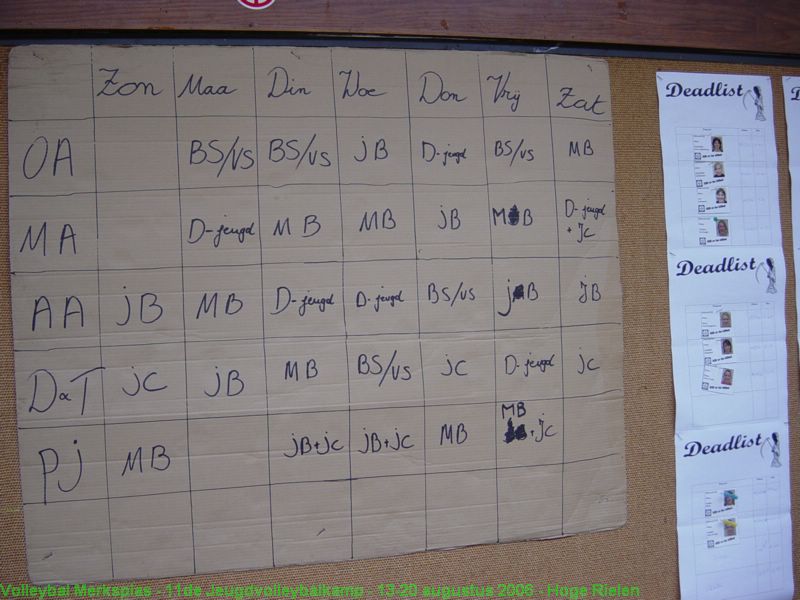 Zon Maa Din Woe Don Vrij Zat
OA BS/VS BS/VS jB D-jeugd BS/VS MB
MA D-jeugd MB MB jB MB D-jeugd + jC
AA jB MB D-jeugd D-jeugd BS/VS jB JB
D&T jC jB MB BS/VS jC D-jeugd jC
PJ MB jB+jC jB+jC MB MB + jC
Deadlist
Deadlist
Deadlist
Volleybal Merksplas - 11de Jeugdvolleybalkamp - 13-20 augustus 2006 - Hoge Rielen